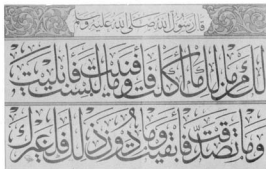 قال رسول الله صلى الله عليه وسلم
لك من مالك ما أكلت فأفنيت وما لبست فأبليت
وما تصدقت فأبقيت وما دون ذلك فلغيرك